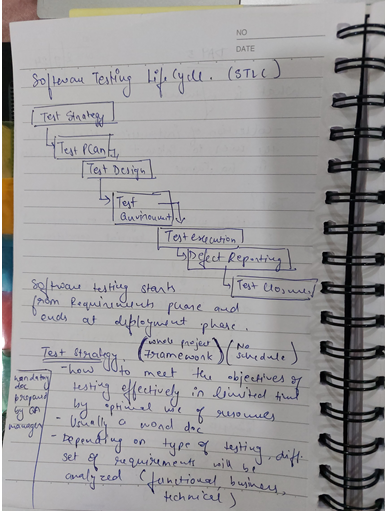 NO
DATE
Software Testing Life Cycle. (STLC)
Test Strategy
Test Plan
Test Design
Test
Environment
Test execution
Defect Reporting
Test Closure
Software testing starts
from Requirements phase and
ends at deployment phase.
Test Strategy (whole project Framework) (No schedule)
- how to meet the objectives of
testing effectively in limited time
by optimal use of resources
- Usually a word doc
- Depending on type of testing, diff.
set of requirements will be
analyzed (functional, business,
technical)
mandatory
doc
prepared
by QA
manager